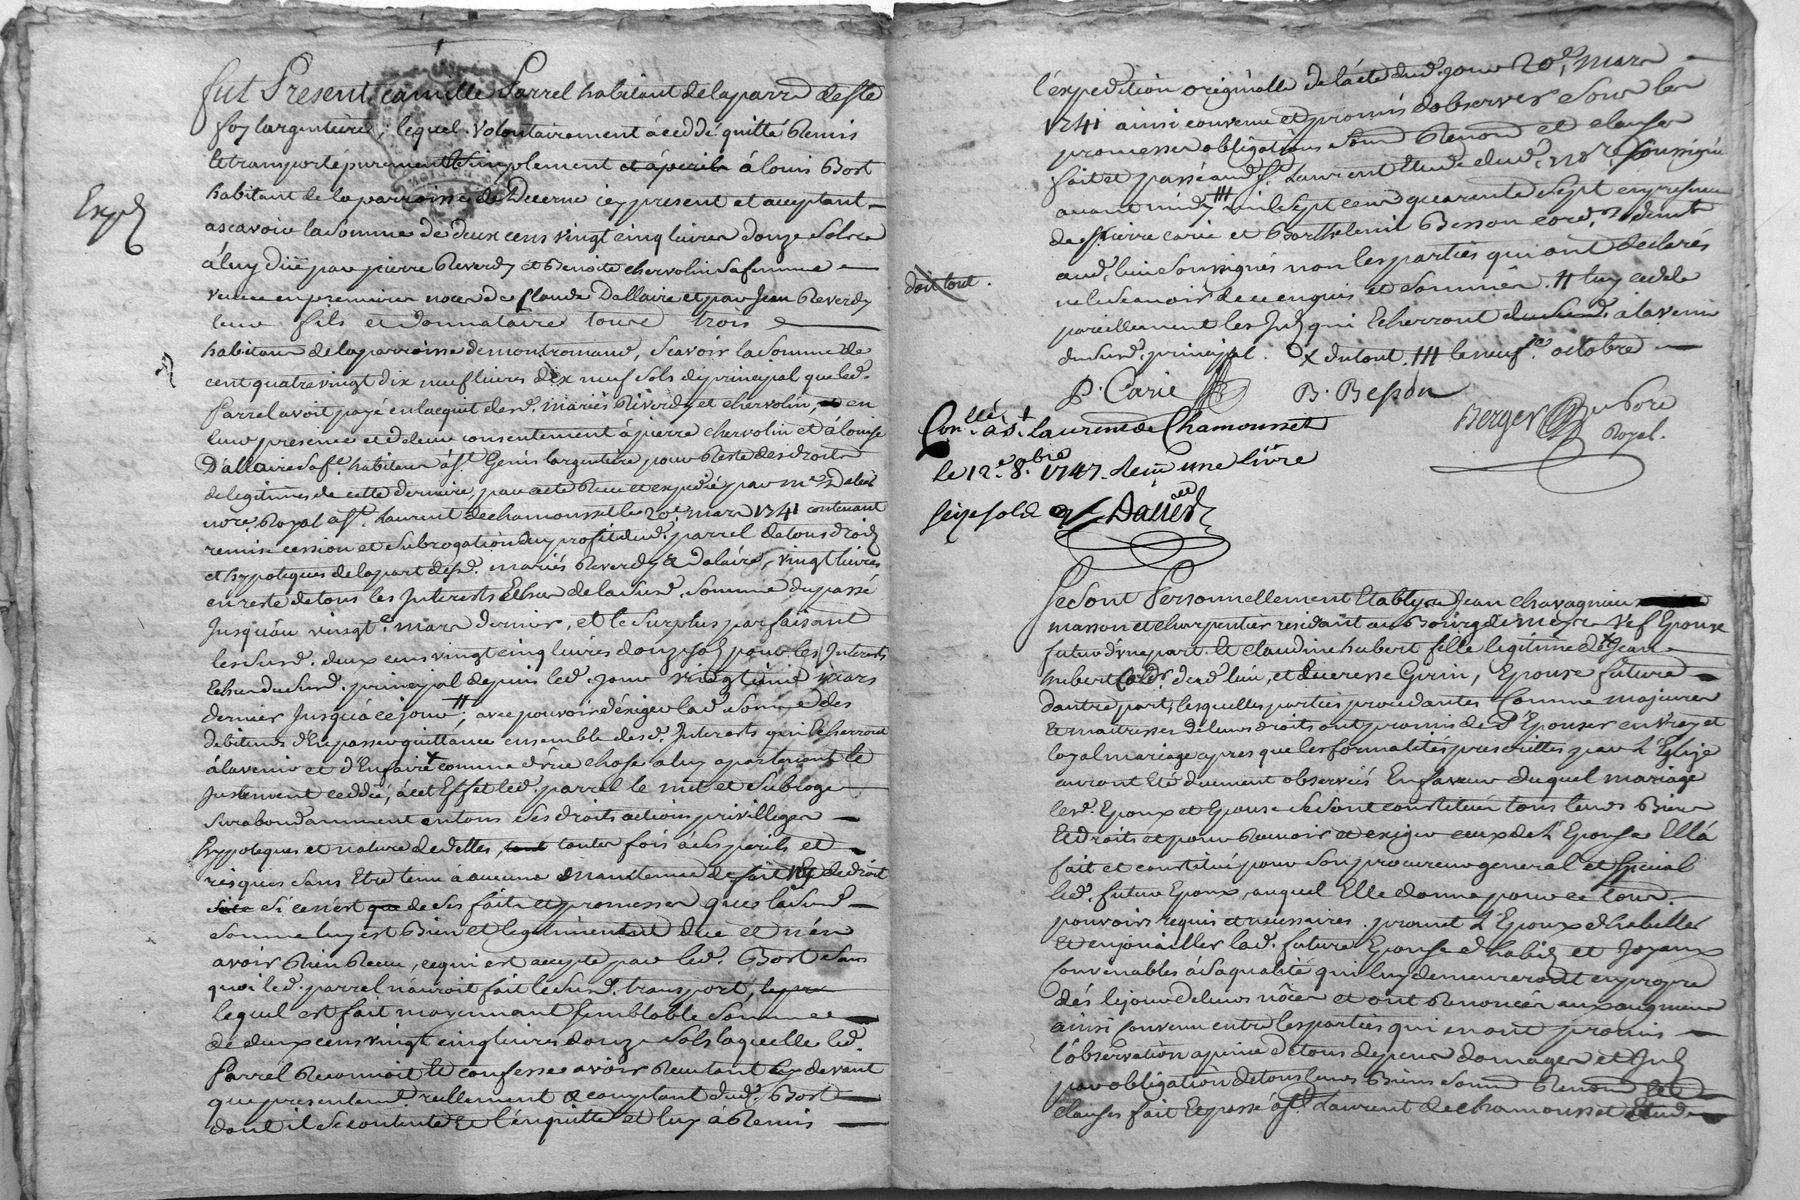 fut Present camille Parrel habitant de la parr. de Ste
foy largentiere, lequel volontairement à ceddé quitté Remis
et transporté purement et simplement et à perils à louis Bost
habitant de la parroisse de Duerne icy present et acceptant
Expd
ascavoir la somme de deux cens vingt cinq livres douze sols
à luy düe par pierre Reverdy et Benoite chervolin sa femme
veuve en premieres noces de Claude Dallaire et par Jean Reverdy
leur fils et donnataire tous trois
habitans de la parroisse de montromand, scavoir la somme de
cent quatre vingt dix neuf livres dix neuf sols de principal que led.
Parrel avoit payé en lacquit desd. mariés Reverdy et chervolin, et en
leur presence et de leur consentement à pierre chervolin et à louise
Dallaire sa fe. habitans à St. Genis largentiere pour Reste des droits
de legitimes de cette derniere, par acte Receu et expedié par me.
nore. Royal à St. Laurent de chamousset le 20e. mars 1741 contenant
remise cession et subrogation au profit dud. parrel de tous droits
et hypoteques de la part desd. mariés Reverdy & dalaire, vingt livres
en reste de tous les Interests Echus de la susd. somme du passé
Jusqu'au vingt e. mars dernier, et le surplus parfaisant
lesusd. deux cens vingt cinq livres douze sols pour les Interests
Echus du susd. principal depuis led. jour vingtième mars
dernier jusqu'à ce jour #, avec pouvoir d'exiger lad. somme des
debiteurs d'En passer quittance ensemble desd. Interests qui Echerront
à lavenir et d'En faire comme d'une chose à luy apartenante
Justement ceddée, à cet Effet led. parrel le met et subroge
surabondamment en tous ses droits actions privilleges
hypoteques et nature de dettes, tout toutes fois à ses perils et
risques sans Etre tenu à aucune maintenue de fait ny de droit
si ce n'est que de ses faits et promesses que la susd.
somme luy est Bien et legitimement due et n'en
avoir Rien Receu, ce qui est accepté par led. Bost sans
quoi led. parrel n'auroit fait le susd. transport,
lequel est fait moyennant semblable somme
de deux cens vingt cinq livres douze sols laquelle led.
Parrel Reconnoit et confesse avoir Receu tant cy devant
que presentemt. réellement & comptant dud. Bost
dont il se contente et l'en quitte et luy à Remis
l'expedition originalle de lacte dud. jour 20e. mars
1741 ainsi convenu et promis d'observer sous les
promesses obligations soum. Renon. et clauses
fait et passé aud. St. Laurent Etude dud. nore. soussigné
avant midy ### mil sept cens quarante sept en presence
de Sr. pierre carie et Barthelemi Besson cord. demt.
aud. lieu soussignés non les parties qui ont declarés
ne le scavoir de ce enquis et sommés. # luy cedde
doit tout.
pareillement les Jnts. qui Echerront à lavenir
du susd. principal. dutout. ### le neufe. octobre
P. Carie B. Besson
Berger
Royal.
Conllé. à St. Laurent de Chamousset
le 12e. 8bre 1747. Reçu une livre
seize sols
Se sont Personnellement Etablys Jean chavagnieu
masson et charpentier residant au Bourg de meys Vef Epoux
futur d'une part. et claudine hubert fille legitime de Jean
hubert Cordr. dud. lieu, et Epouse future
dautre part, lesquelles parties procedantes Comme majeures
et maitresses de leurs droits ont promis de s'Epouser en vray et
loyal mariage apres que les formalités prescrittes par l'Eglise
auront Eté duement observés En faveur duquel mariage
lesd. Epoux et Epouse se sont constitués tous leurs Biens
Et droits et pour Recevoir et exiger ceux de l'Epouse Ell'a
fait et constitué pour son procureur general et special
led. futur Epoux, auquel Elle donne pour ce tous
pouvoirs requis et necessaires. promet l'Epoux d'habiller
et enjoailler lad. future Epouse d'habits et Joyaux
Convenables à sa qualité qui luy demeureront en propre
dés le jour de leurs nôces et ont Renoncés aux augment
ainsi convenu entre les parties qui en ont promis
l'observation a peine de tous depens domages et Jnts.
par obligation de tous leurs Biens soum. Renon. et
clauses fait Et passé à St. Laurent de chamousset Etude